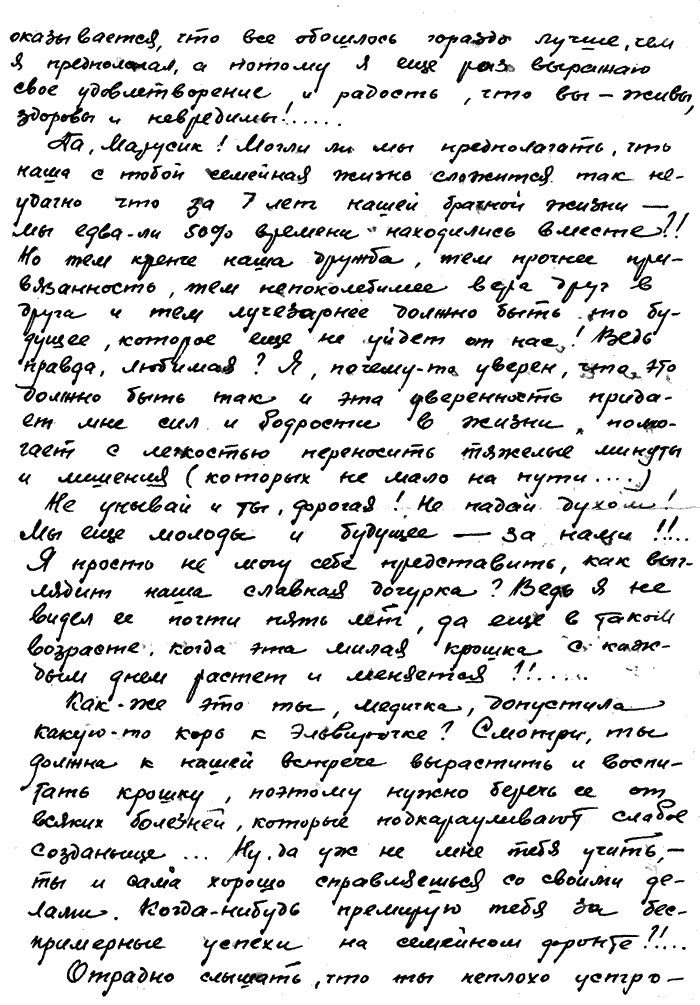 оказывается, что все обошлось гораздо лучше, чем
я предполагал, а потому я еще раз выражаю
свое удовлетворение и радость, что вы – живы,
здоровы и невредимы!.....
Да, Марусик! Могли ли мы предполагать, что
наша с тобой семейная жизнь сложится так не-
удачно что за 7 лет нашей брачной жизни —
мы едва-ли 50% времени находились вместе?!!
Но тем крепче наша дружба, тем прочнее при-
вязанность, тем непоколебимее вера друг в
друга и тем лучезарнее должно быть то бу-
дущее, которое еще не уйдет от нас! Ведь
правда, любимая? Я, почему-то уверен, что это
должно быть так и эта уверенность прида-
ет мне сил и бодрости в жизни, помо-
гает с легкостью переносить тяжелые минуты
и лишения (которых не мало на пути....)
Не унывай и ты, дорогая! Не падай духом!
Мы еще молоды и будущее — за нами!!!..
Я просто не могу себе представить, как выг-
лядит наша славная дочурка? Ведь я не
видел ее почти пять лет, да еще в таком
возрасте, когда эта милая крошка с каж-
дым днем растет и меняется?!!.....
Как-же это ты, медичка, допустила
какую-то корь к Эльвирочке? Смотри, ты
должна к нашей встрече вырастить и воспи-
тать крошку, поэтому нужно беречь ее от
всяких болезней, которые подкарауливают слабое
созданьище... Ну, да уж не мне тебя учить, –
ты и сама хорошо справляешься со своими де-
лами. Когда-нибудь премирую тебя за бес-
примерные успехи на семейном фронте?!!...
Отрадно слышать, что ты неплохо устро-